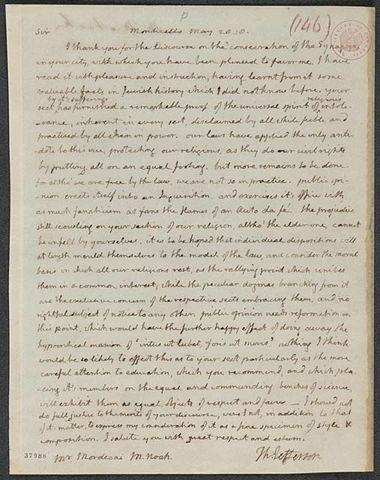 (146)
Sir Monticello May 28. 18.
I thank you for the Discourse on the consecration of the Synagogue
in your city, with which you have been pleased to favor me. I have
read it with pleasure and instruction, having learnt from it some
valuable facts in Jewish history which I did not know before. your
by it's sufferings religious
sect has furnished a remarkable proof of the universal spirit of intole-
-rance, inherent in every sect, disclaimed by all while feeble, and
practised by all when in power. our laws have applied the only anti-
dote to this vice, protecting our religious, as they do our civil rights
by putting all on an equal footing. but more remains to be done.
for altho' we are free by the law, we are not so in practice. public opi-
-nion erects itself into an Inquisition, and exercises it's office with
as much fanaticism as fans the flames of an Auto da fé. the prejudice
still scowling on your section of our religion, altho' the elder one, cannot
be unfelt by yourselves. it is to be hoped that individual dispositions will
at length mould themselves to the model of the law, and consider the moral
basis on which all our religions rest, as the rallying point which unites
them in a common interest; while the peculiar dogmas branching from it
are the exclusive concern of the respective sects embracing them, and no
rightful subject of notice to any other. public opinion needs reformation on
this point, which would have the further happy effect of doing away the
hypocritical maxim of 'intus ut lubet, foris ut moris.' nothing I think
would be so likely to effect this as to your sect particularly as the more
careful attention to education, which you recommend, and which pla-
-cing it's members on the equal and commanding benches of science
will exhibit them as equal objects of respect and favor. I should not
do full justice to the merits of your discourse, were I not, in addition to that
of it's matter, to express my consideration of it as a fine specimen of style &
composition. I salute you with great respect and esteem.
37988
Mr. Mordecai M. Noah. Th: Jefferson